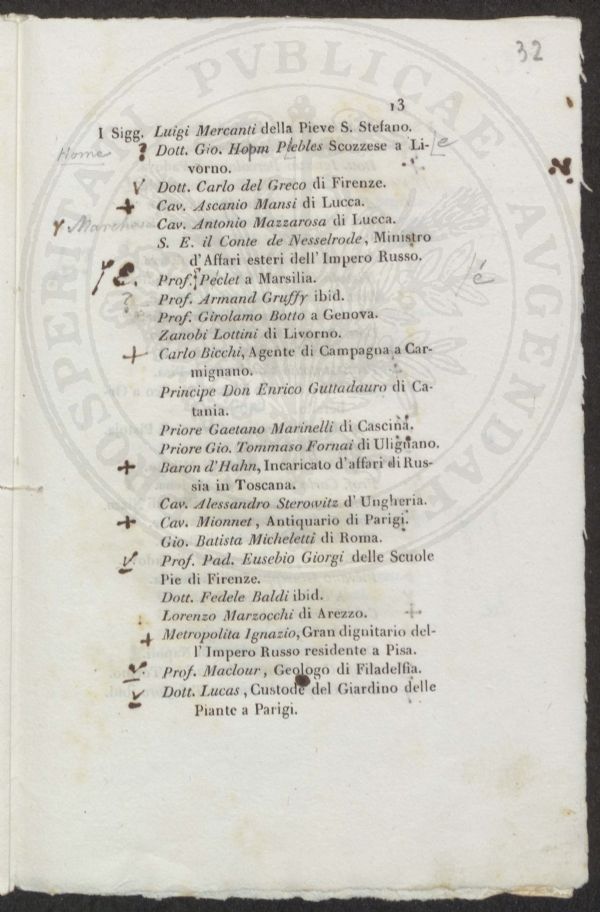 32
13
I Sigg. Luigi Mercanti della Pieve S. Stefano.
Home ? Dott. Gio. Hopm Peebles Scozzese a Li- e
vorno.
V Dott. Carlo del Greco di Firenze.
+ Cav. Ascanio Mansi di Lucca.
Marchese Cav. Antonio Mazzarosa di Lucca.
S. E. il Conte de Nesselrode, Ministro
d'Affari esteri dell'Impero Russo.
Prof. Péclet a Marsilia. é
? Prof. Armand Gruffy ibid.
Prof. Girolamo Botto a Genova.
Zanobi Lottini di Livorno.
+ Carlo Bicchi, Agente di Campagna a Car-
mignano.
Principe Don Enrico Guttadauro di Ca-
tania.
Priore Gaetano Marinelli di Cascina.
Priore Gio. Tommaso Fornai di Ulignano.
+ Baron d'Hahn, Incaricato d'affari di Rus-
sia in Toscana.
Cav. Alessandro Sterowitz d'Ungheria.
+ Cav. Mionnet, Antiquario di Parigi.
Gio. Batista Micheletti di Roma.
V Prof. Pad. Eusebio Giorgi delle Scuole
Pie di Firenze.
Dott. Fedele Baldi ibid.
Lorenzo Marzocchi di Arezzo. +
+ Metropolita Ignazio, Gran dignitario del-
l'Impero Russo residente a Pisa.
V Prof. Maclour, Geologo di Filadelfia.
V Dott. Lucas, Custode del Giardino delle
Piante a Parigi.
PROSPERITATI PVBLICAE AVGENDAE